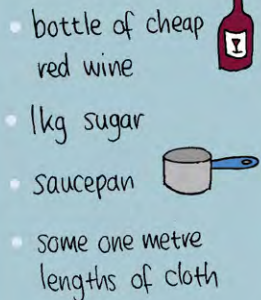 bottle of cheap
red wine
1kg sugar
saucepan
some one metre
lengths of cloth